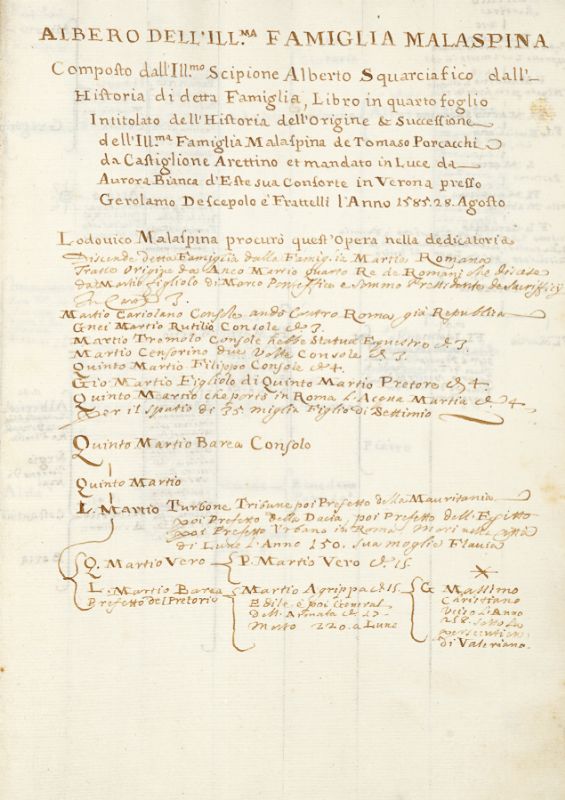 ALBERO DELL'ILL.MA FAMIGLIA MALASPINA
Composto dall'Ill.mo Scipione Alberto Squarciafico dall'
Historia di detta Famiglia, Libro in quarto foglio
Intitolato dell'Historia dell'Origine & Successione
dell'Ill.ma Famiglia Malaspina de Tomaso Porcacchi
da Castiglione Arettino et mandato in Luce da
Aurora Bianca d'Este sua Consorte in Verona presso
Gerolamo Descepolo e Frattelli l'Anno 1585.28. Agosto
Lodovico Malaspina procurò quest'Opera nella dedicatoria
Discende detta Famiglia dalla Famiglia Martia Romana
Tratto Origine da Anco Martio quarto Re de Romani che discese
da Martio figliolo di Marco Pontefice e Sommo de Sacrificij
3.
Martio Coriolano Console andò Contro Roma già Republica
Gnei Martio Rutilio Console 3.
Martio Tremolo Console hebbe Statua Equestre 3.
Martio Censorino due Volte Console 3.
Quinto Martio Filippo Console 4.
Gio Martio Figliolo di Quinto Martio Pretore 4.
Quinto Martio che portò in Roma L'Acqua Martia 4.
per il spatio di 35 miglia Figlio di Settimio
Quinto Martio Barea Consolo
Quinto Martio
L. Martio Turbone Tribune poi Prefetto della Mauritania
poi Prefetto della Dacia, poi Prefetto dell'Egitto
poi Prefetto Urbano in Roma Morì nella città
di Lune l'Anno 150. sua moglie Flavia
Q. Martio Vero P. Martio Vero 15.
L. Martio Barea Prefetto del Pretorio
Martio Agrippa 15.
Edile e poi General
dell'Armata
Morto 220. a Lune
G Massimo
Christiano
Uciso L'Anno
258. sotto la
persecution
di Valeriano.